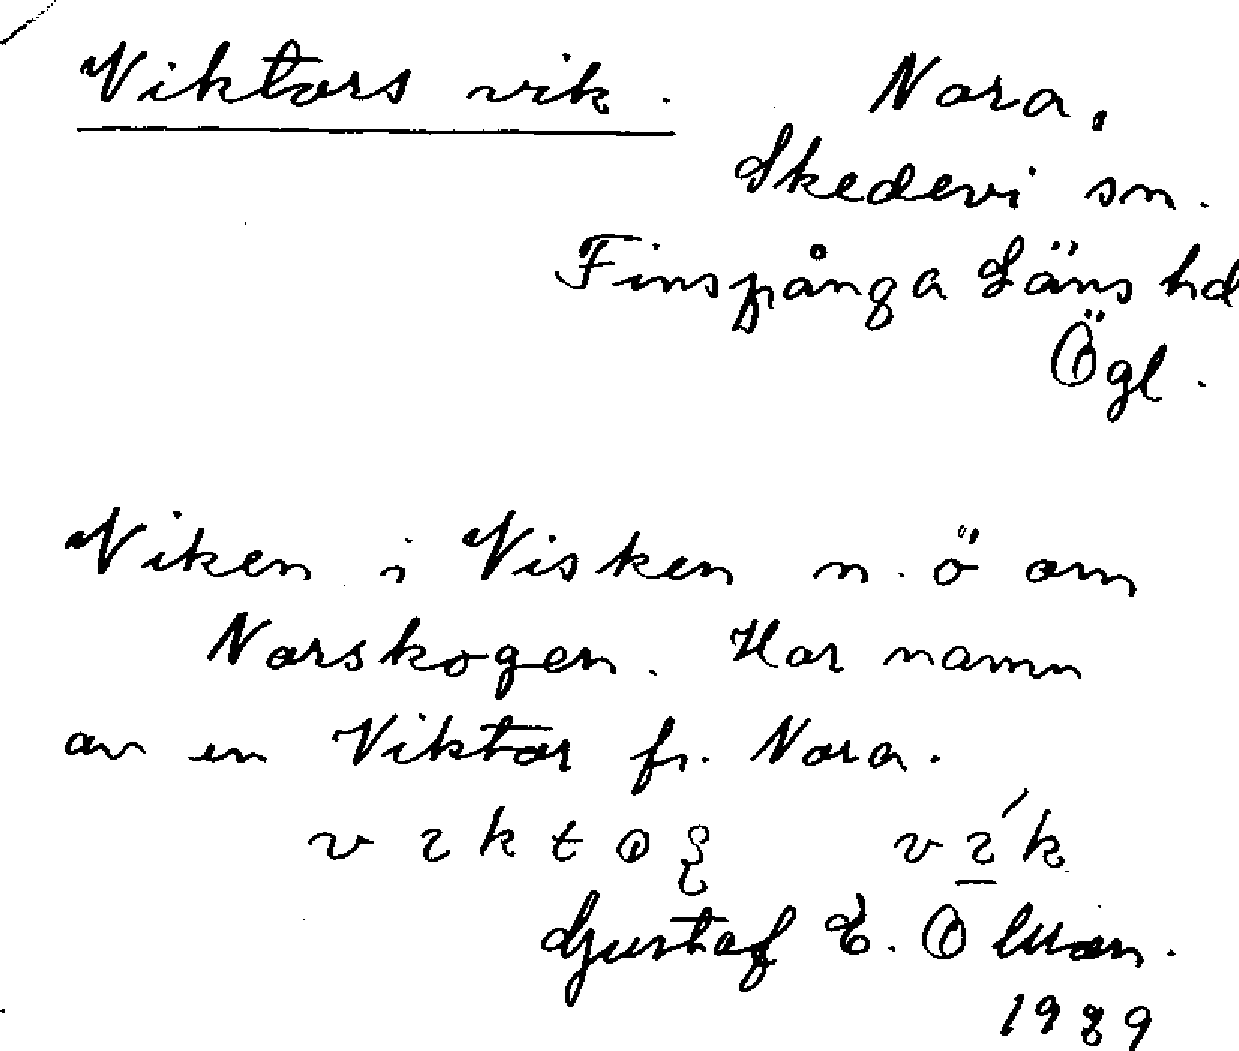 Viktors vik. Nora,
Skedevi sn.
Finspånga Läns hd
Ögl.
Viken i Visken n. ö om
Norskogen. Har namn
av en Viktor fr. Nora.
Gustaf E. Olsson.